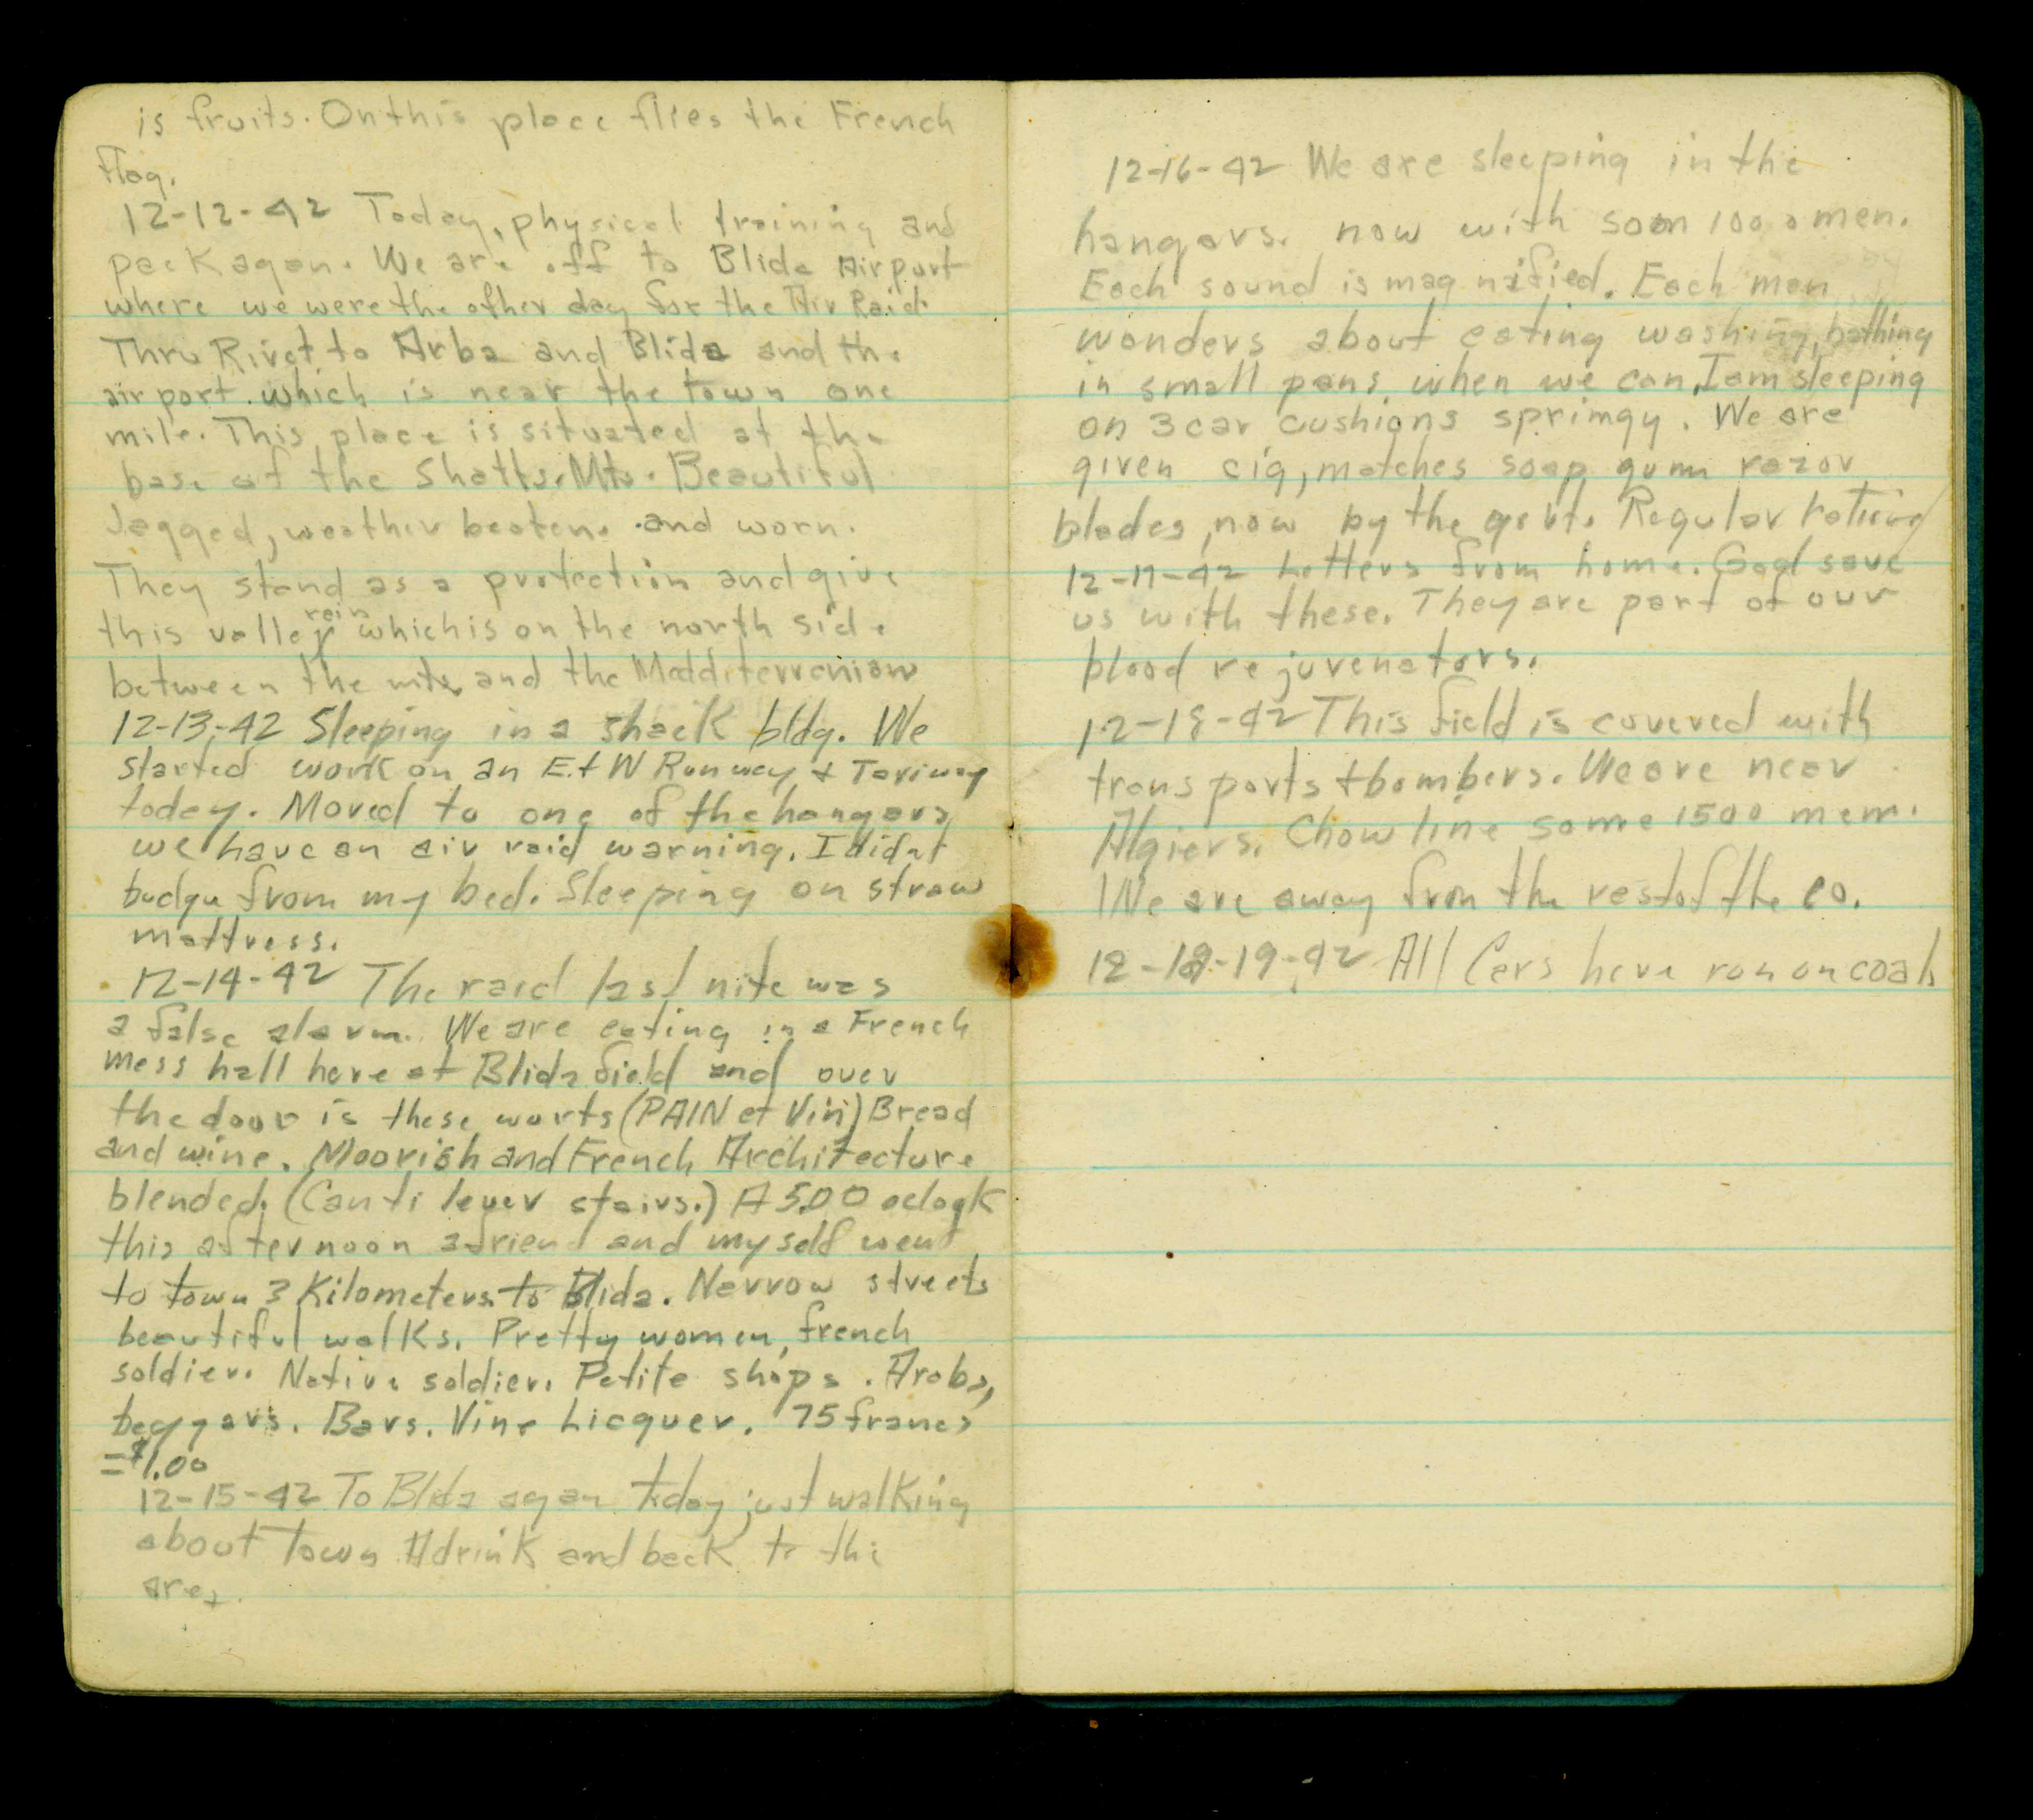 is fruits. On this place flies the French
flag.
12-12-42 Today, physical training and
pack agan. We are off to Blida Airport
where we were the other day for the Air Raid.
Thru Rivet to Arba and Blida and the
airport which is near the town one
mile. This place is situated at the
base of the Shatts. Mts. Beautiful
Jagged, weather beaten. and worn.
They stand as a protection and give
rain
this valley which is on the north side
between the mts, and the Medditerranian
12-13-42 Sleeping in a shack bldg. We
started work on an E.+W Runway + Taxiway
today. Moved to one of the hangars,
we have an air raid warning. I didnt
budge from my bed. Sleeping on straw
mattress.
12-14-42 The raid last nite was
a false alarm. We are eating in a French
mess hall here at Blida field and over
the door is these worts (PAIN et Vin) Bread
and wine. Moorish and French Architecture
blended. (Canti lever stairs.) A 5.00 oclock
this afternoon a friend and myself went
to town 3 Kilometers to Blida. Narrow streets
beautiful walks. Pretty women, french
soldier. Native soldier. Petite shops. Arabs,
beggars. Bars. Vine Licquer. 75 francs
=$1.00
12-15-42 To Blida agan today just walking
about town A drink and back to the
area.
12-16-42 We are sleeping in the
hangars. now with som 1000 men.
Each sound is magnified. Each man
wonders about eating washing, bathing
in small pans when we can, I am sleeping
on 3 car cushions springy. We are
given cig, matches soap gum razor
blades, now by the govt. Regular rations
12-17-42 Letters from home. God save
us with these. They are part of our
blood rejuvenators.
12-18-42 This field is covered with
transports + bombers. We are near
Algiers. Chow line some 1500 mem.
We are away from the rest of the co.
12-18-19-42 All Cars here run on coal